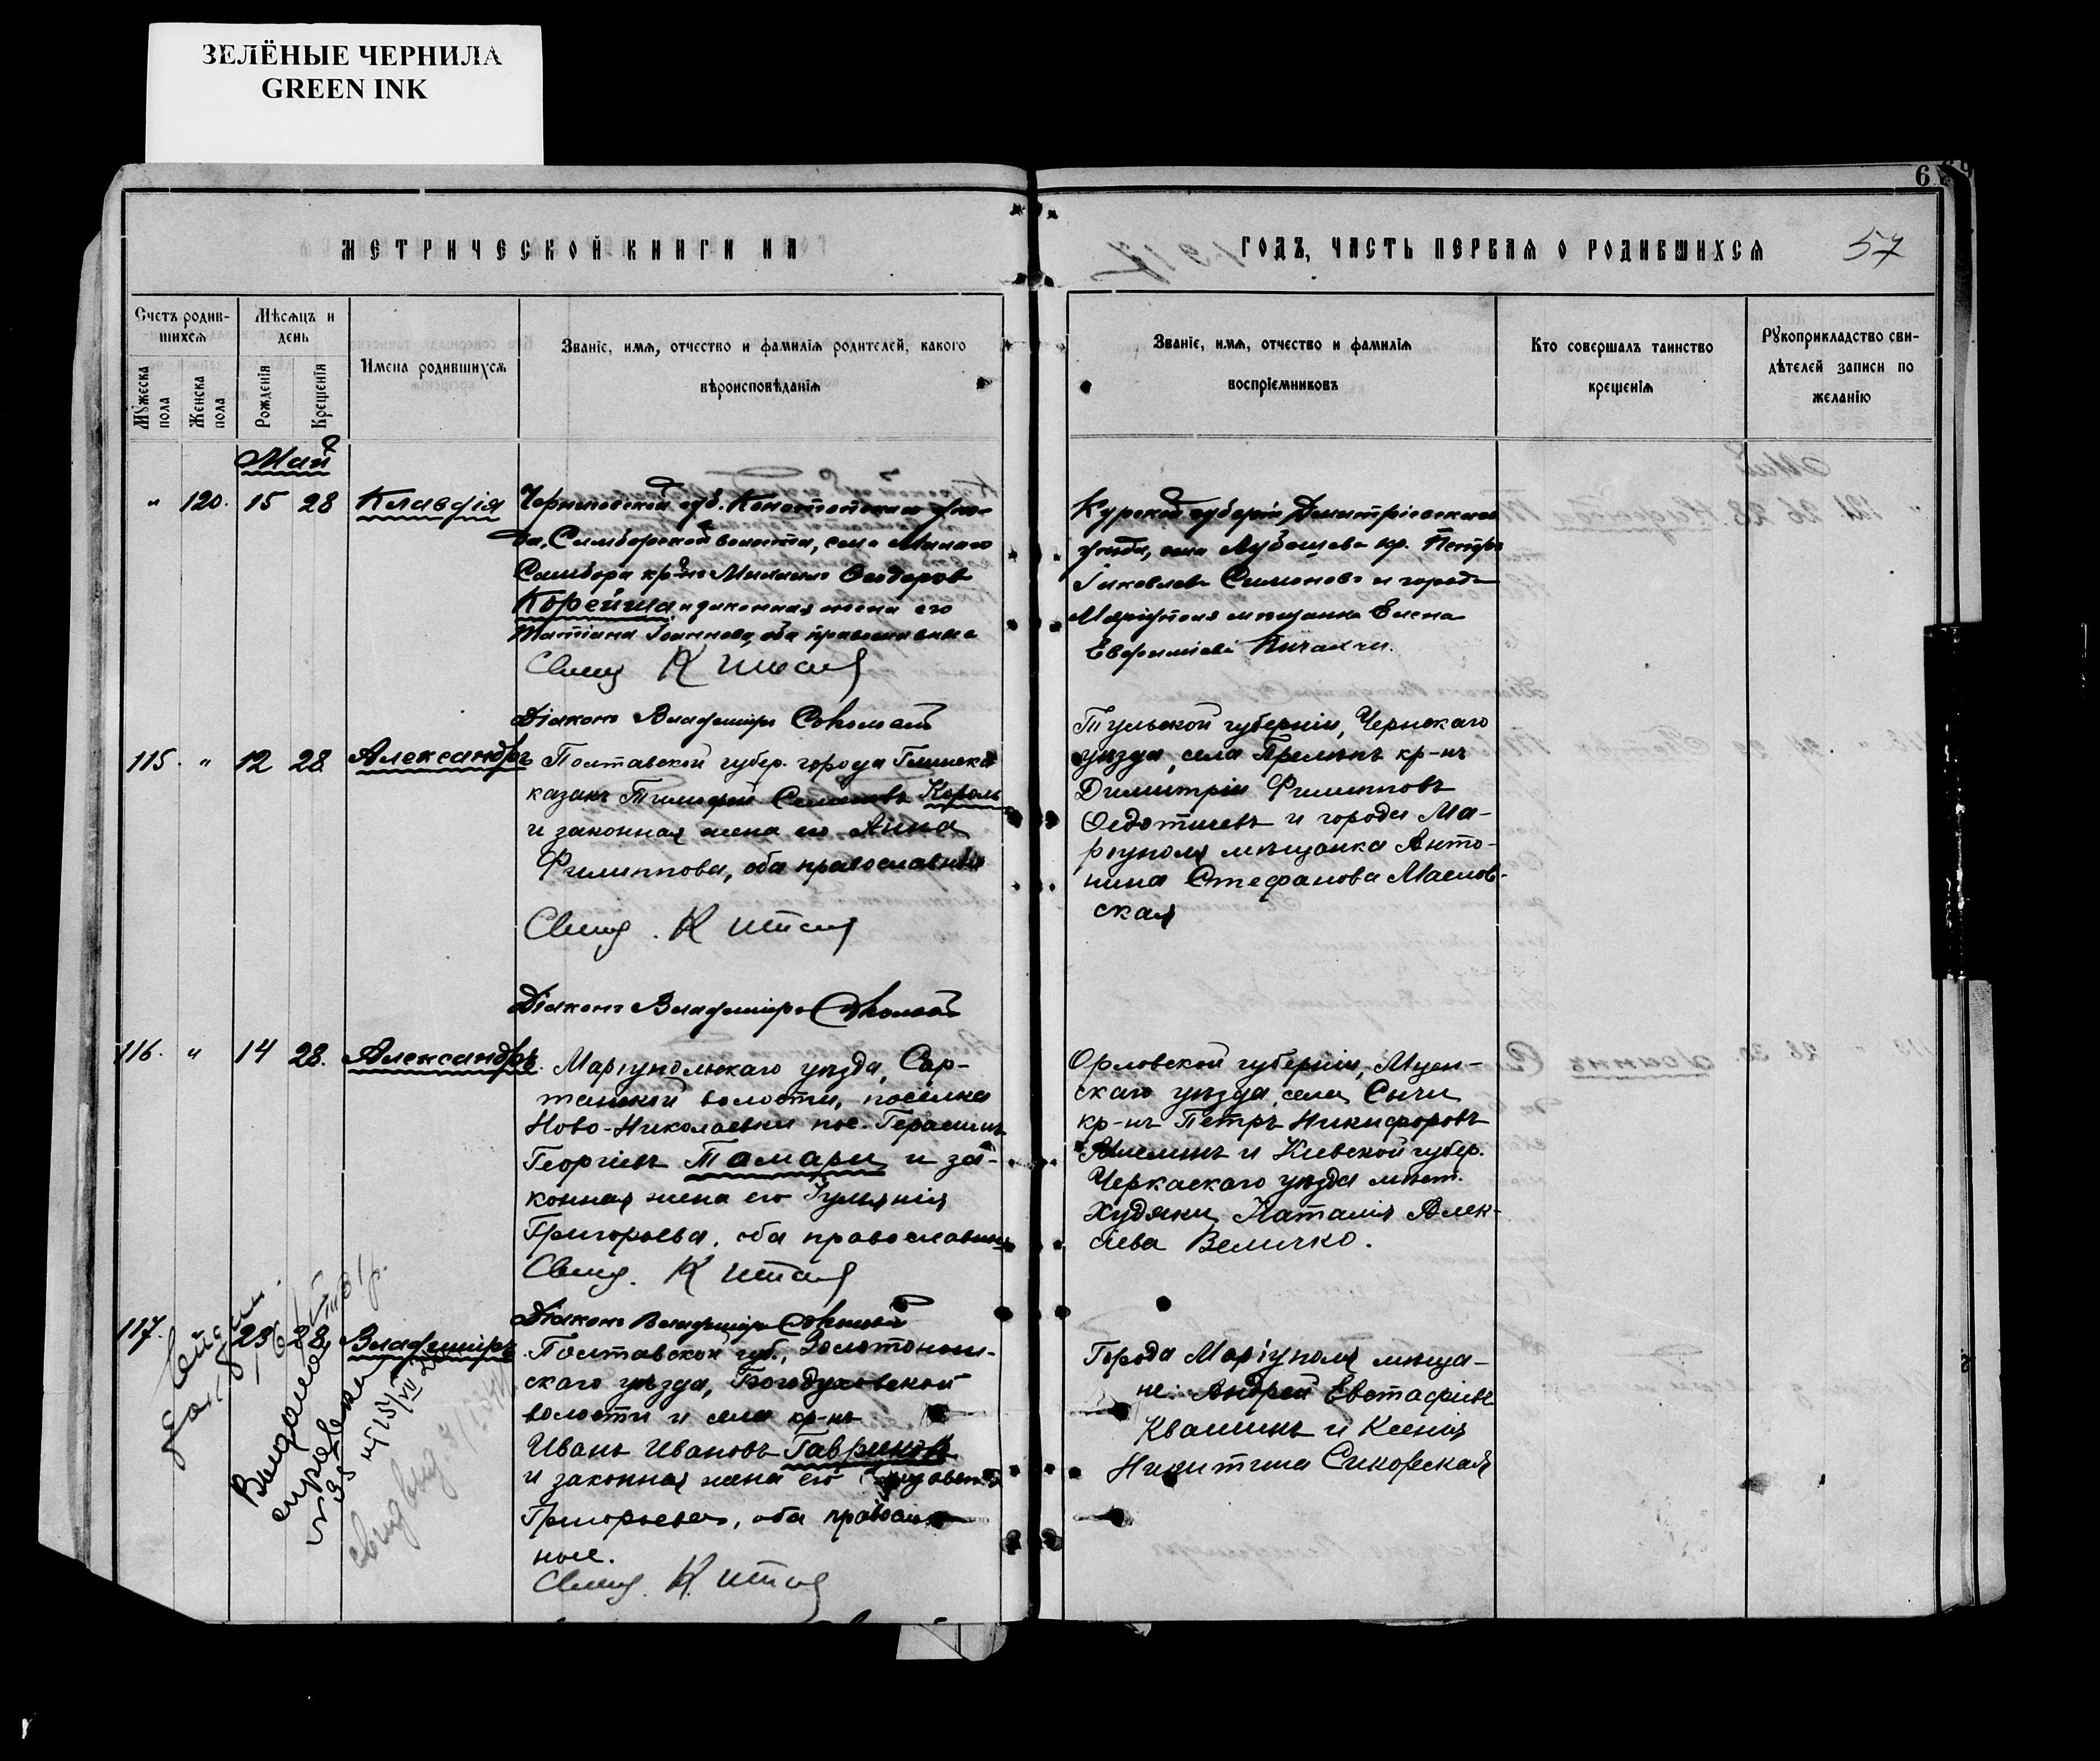 ЗЕЛЁНЫЕ ЧЕРНИЛА
GREEN INK
МЕТРИЧЕСКОЙ КНИГИ НА
ГОДЪ, ЧАСТЬ ПЕРВАЯ О РОДИВШИХСЯ
57
6
Счетъ родив-
шихся
Мужеска
пола
Женска
пола
Мѣсяцъ и
день
Рожденія
Крещенія
Имена родившихся
Званіе, имя, отчество и фамилія родителей, какого
вѣроисповѣданія
Званіе, имя, отчество и фамилія
воспріемниковъ
Кто совершалъ таинство
крещенія
Рукоприкладство сви-
дѣтелей записи по
желанію
Май
" 120. 15 28 Клавдія
Черниговской губ. Конотопскаго уѣз-
да, Самборской волости, села Малаго
Самбора кр-нъ Михаилъ Ѳеодоровъ
Корейша и законная жена его
Татіана Іоаннова, оба православные
Свящ.
Діаконъ Владиміръ
Курской губерніи, Дмитріевскаго
уѣзда, села кр. Петръ
Іаковлевъ Симоновъ и города
Маріуполя мѣщанка Елена
Евфиміева
115. " 12 28 Александръ
Полтавской губер. города Глинска
казакъ Тимофей Семеновъ Король
и законная жена его Анна
Филиппова, оба православные
Свящ.
Діаконъ Владиміръ
Тульской губерніи, Чернскаго
уѣзда, села кр-нъ
Димитрій Филипповъ
Ѳедотичевъ и города Ма-
ріуполя мѣщанка Анто-
нина Стефанова Маслов-
ская
116. " 14 28. Александръ
Маріупольскаго уѣзда, Сар-
танской волости, посёлка
Ново-Николаевки пос. Герасимъ
Георгіевъ Тамари и за-
конная жена его Іуліанія
Григорьева, оба православные
Свящ.
Діаконъ Владиміръ
Орловской губерніи, Мцен-
скаго уѣзда, села Сычи
кр-нъ Петръ Никифоровъ
и Кіевской губер.
Черкаскаго уѣзда мѣст.
Худяки Наталія Алек-
сіева Величко.
117. " 23 28 Владиміръ
Полтавской губ., Золотонош-
скаго уѣзда, Богодуховской
волости и села кр-нъ
Иванъ Ивановъ Гавриковъ
и законная жена его
Григорьева, оба православ-
ные.
Свящ.
Города Маріуполя мѣща-
не: Андрей Евстафіевъ
Квашинъ и Ксенія
Никитина Сикорская